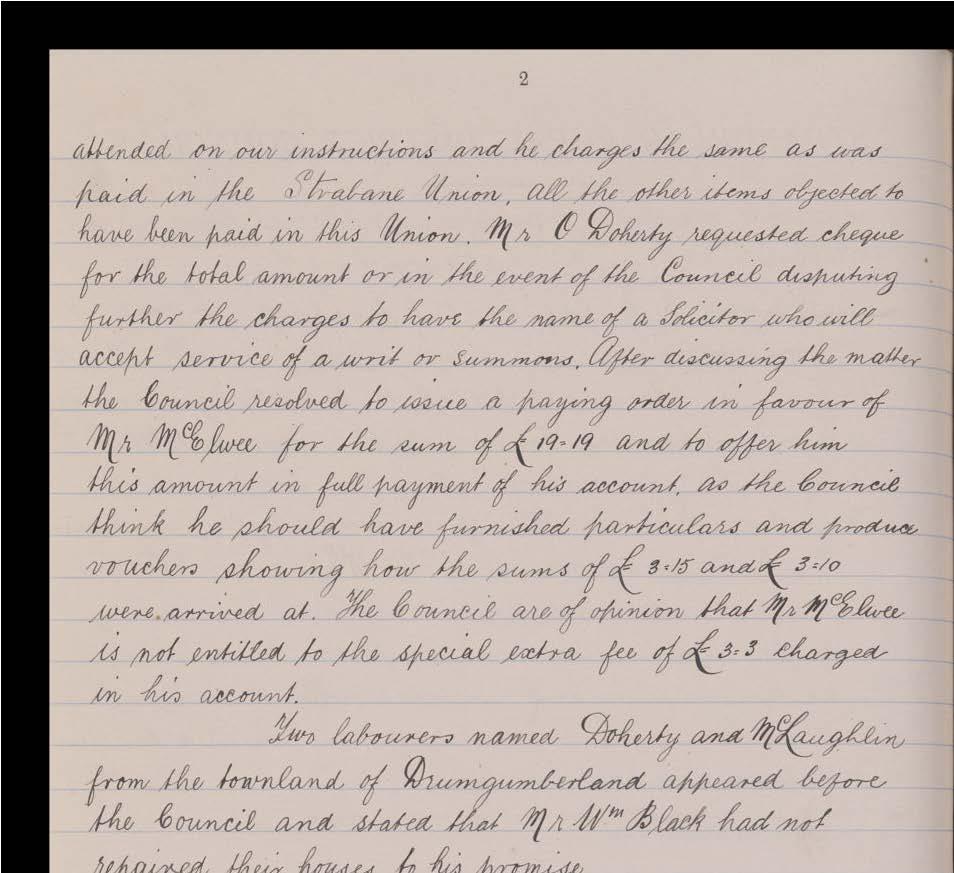 2
attended on our instructions and he charges the same as was
paid in the Strabane Union, All the other items objected to
have been paid in this Union. Mr O Doherty requested cheque
for the total amount or in the event of the Council disputing
further the charges to have the name of a Solicitor who will
accept service of a writ or summons. After discussing the matter
the Council resolved to issue a paying order in favour of
Mr McElwee for the sum of £19=19 and to offer him
this amount in full payment of his account, as the Council
think he should have furnished particulars and produce
vouchers showing how the sums of £ 3=15 and £ 3=10
were arrived at. The Council are of opinion that Mr McElwee
is not entitled to the special extra fee of £ 3=3 charged
in his account.
Two labourers named Doherty and McLaughlin
from the townland of Drumgumberland appeared before
the Council and stated that Mr Wm Black had not
repaired their houses to his promise